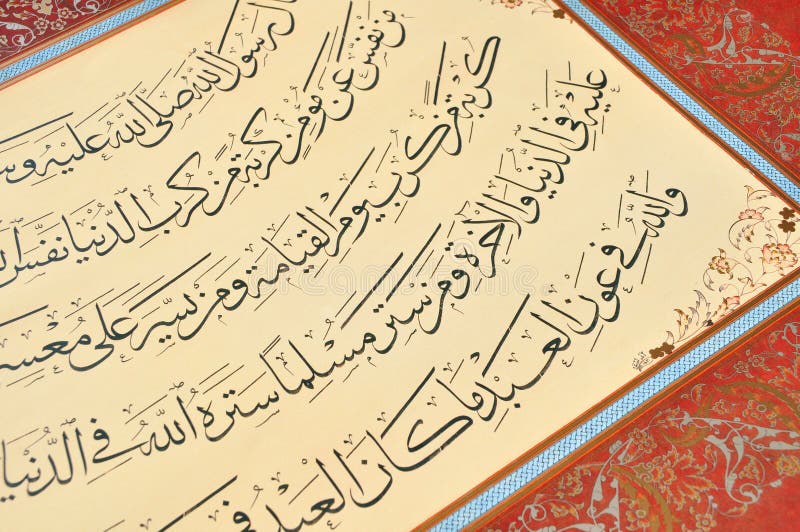 ال رسول الله صلى الله عليه وسـ
من نفس عن مؤمن كربة من كرب الدنيا نفس
كربة من كرب يوم القيامة ومن يسر على معسـ
عليه في الدنيا والآخرة ومن ستر مسلما ستره الله في الدنيا
والله في عون العبد ما كان العبد في